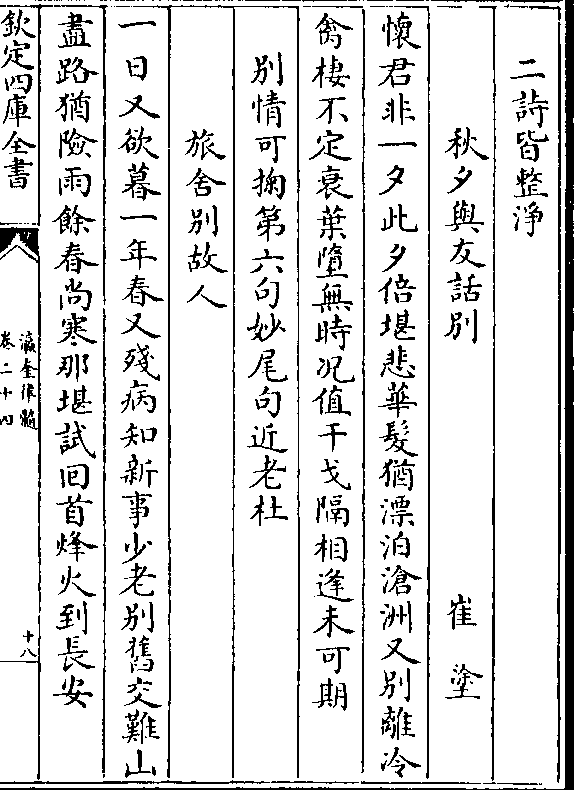 二詩皆整淨
秋夕與友話別　崔塗
懷君非一夕此夕倍堪悲華髮猶漂泊滄洲又别離冷
禽棲不定衰葉墮無時况值干戈隔相逢未可期
别情可掬第六句妙尾句近老杜
旅舍别故人
一日又欲暮一年春又殘病知新事少老别舊交難山
盡路猶險雨餘春尚寒那堪試回首烽火到長安
欽定四庫全書
瀛奎律髓
卷二十四
十八